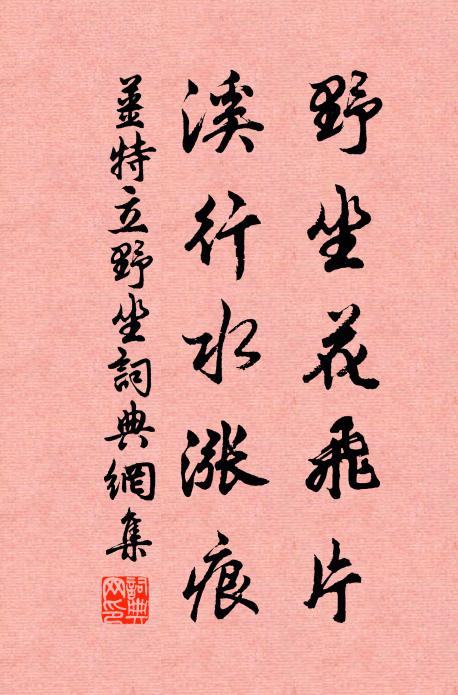 野坐花飛片
溪行水漲痕
姜特立野坐詞典網集
詞典網印